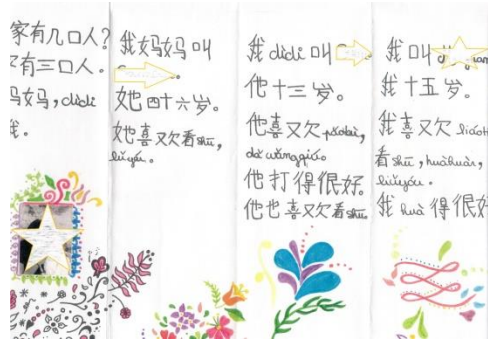 家有几口人?
有三口人。
妈妈, didi
我。
我妈妈叫
她四十六岁。
她喜欢看shū,
lǚyóu.
我 dìdi 叫
他十三岁。
他喜欢 pǎobù,
dǎ wǎngqiú.
他打得很好。
他也喜欢看shū
我叫
我十五岁。
我喜欢 liáoti
看shū, huàhuàr,
lǚyóu.
我 huà 得很好